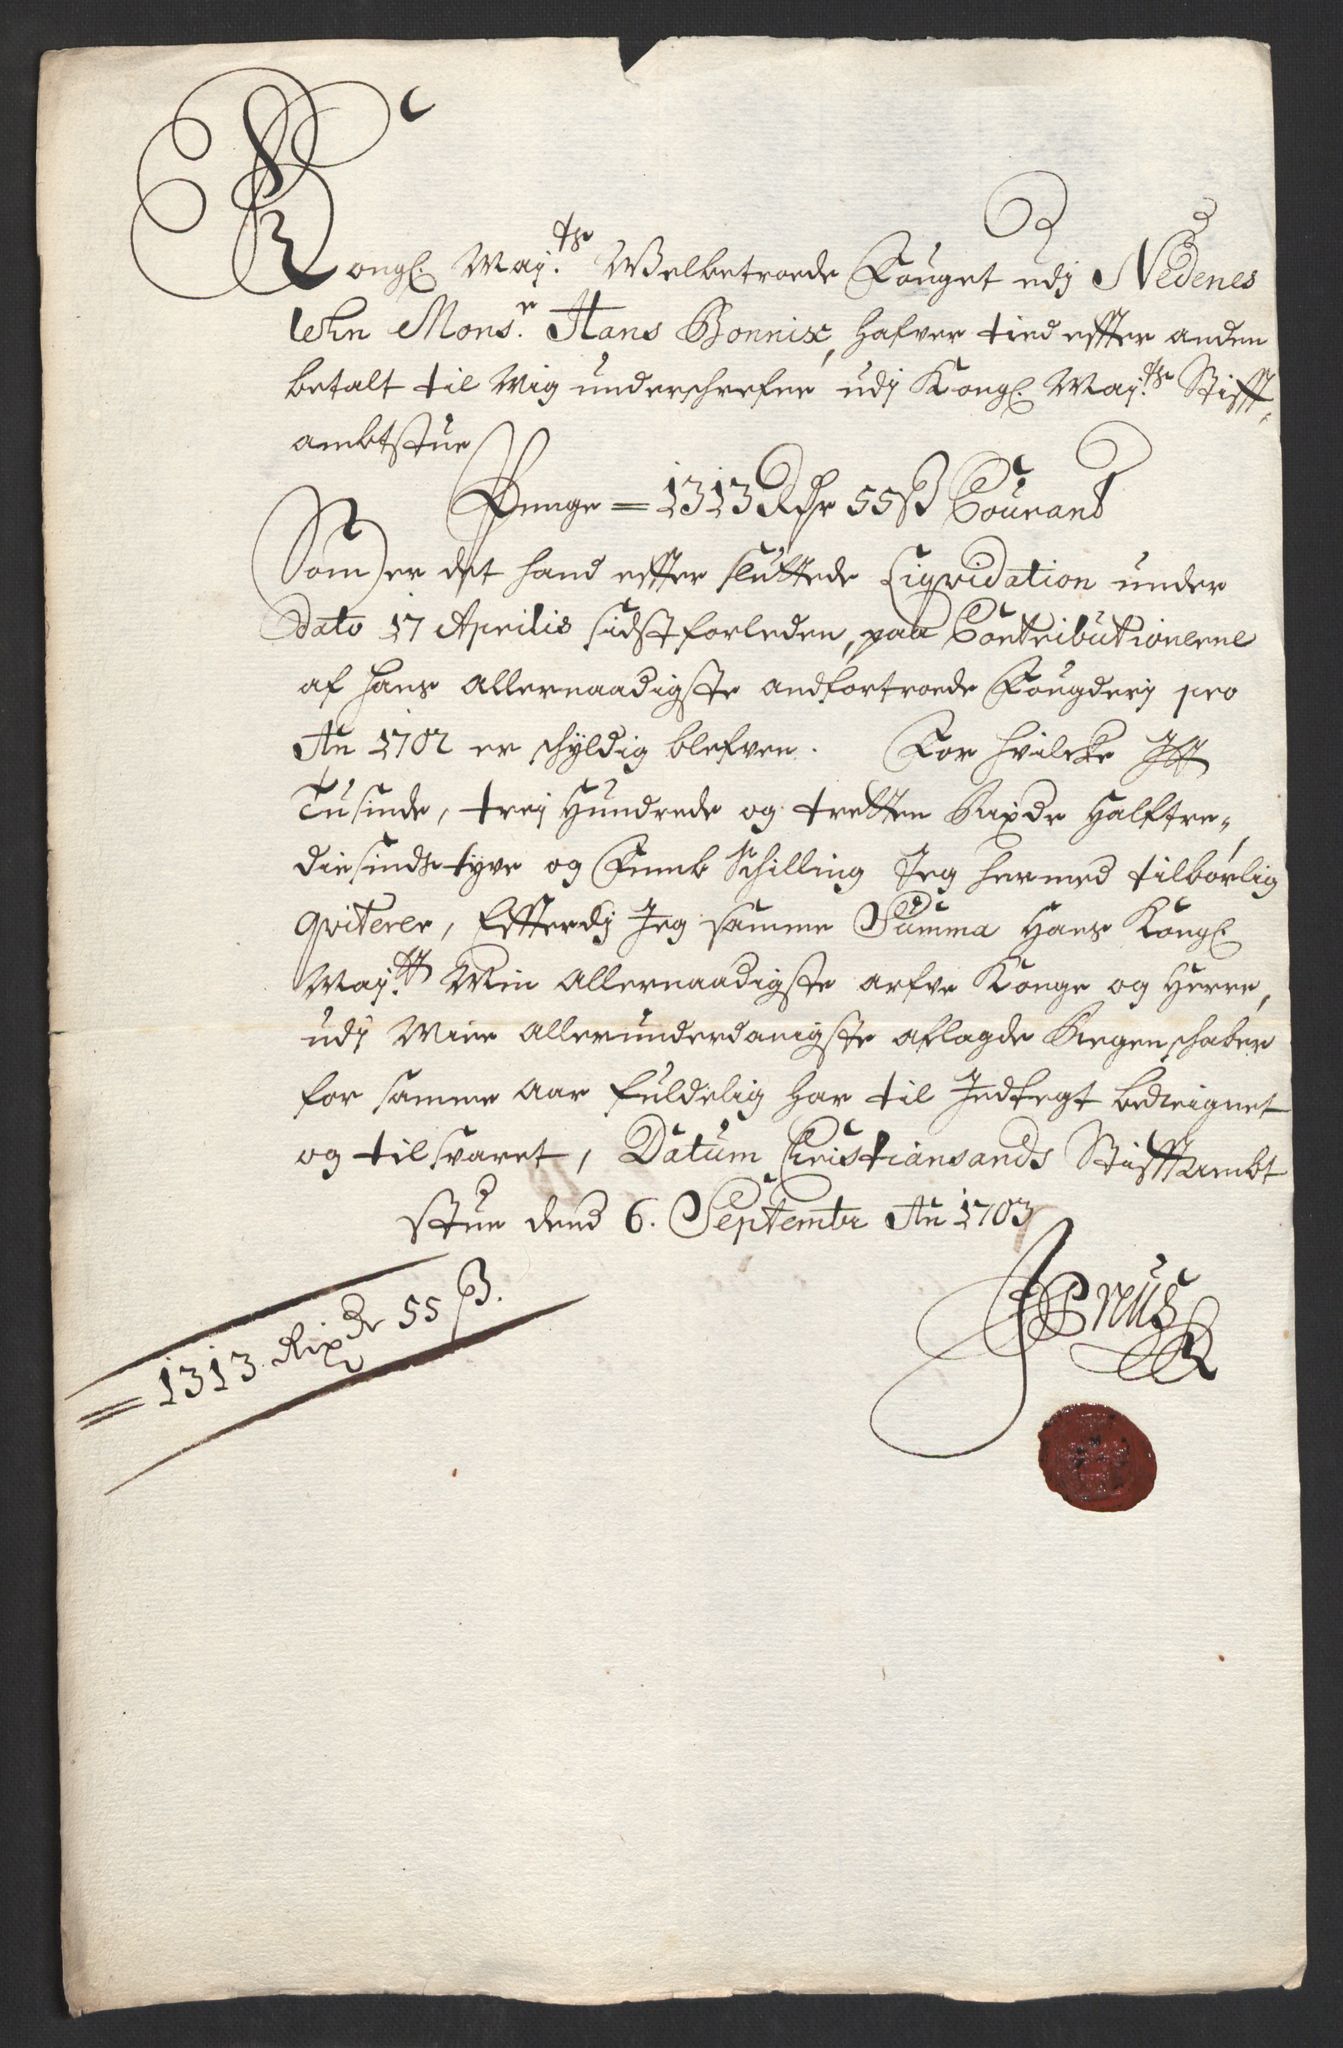 Kongl. May.ts Welbetroede Fouget udj Nedenes
lehn Mons.r Hans Bonnix, hafver tied effter anden
betalt til Mig underschrefne udj Kongl. May.ts Stifft-
ambtstue
Penge = 1313 Rdr 55 ß Courant
Som er det hand effter sluttede Liqvidation under
Dato 17 Aprilis sidstforleden, paa Contributionerne
af hans allernaadigste anfortroede Fougderj pro
An 1702 er schÿldig blefven. For hvilcke Itt
Tusinde, trej Hundrede og tretten Rixdr Halftre-
diesindstyve og Femb Schilling Jeg hermed tilbørlig
qviterer, Effterdj Jeg samme Summa Hans Kongl
May.tt Min allernaadigste arfve Konge og Herre,
udj Mine allerunderdanigste aflagde Regenschaber
for samme Aar fuldelig har til Indtegt bedreignet
og tilsvaret, Datum Christiansands Stifftambt
stue dend 6. Septembr An 1703
= 1313. Rixdr 55 ß.